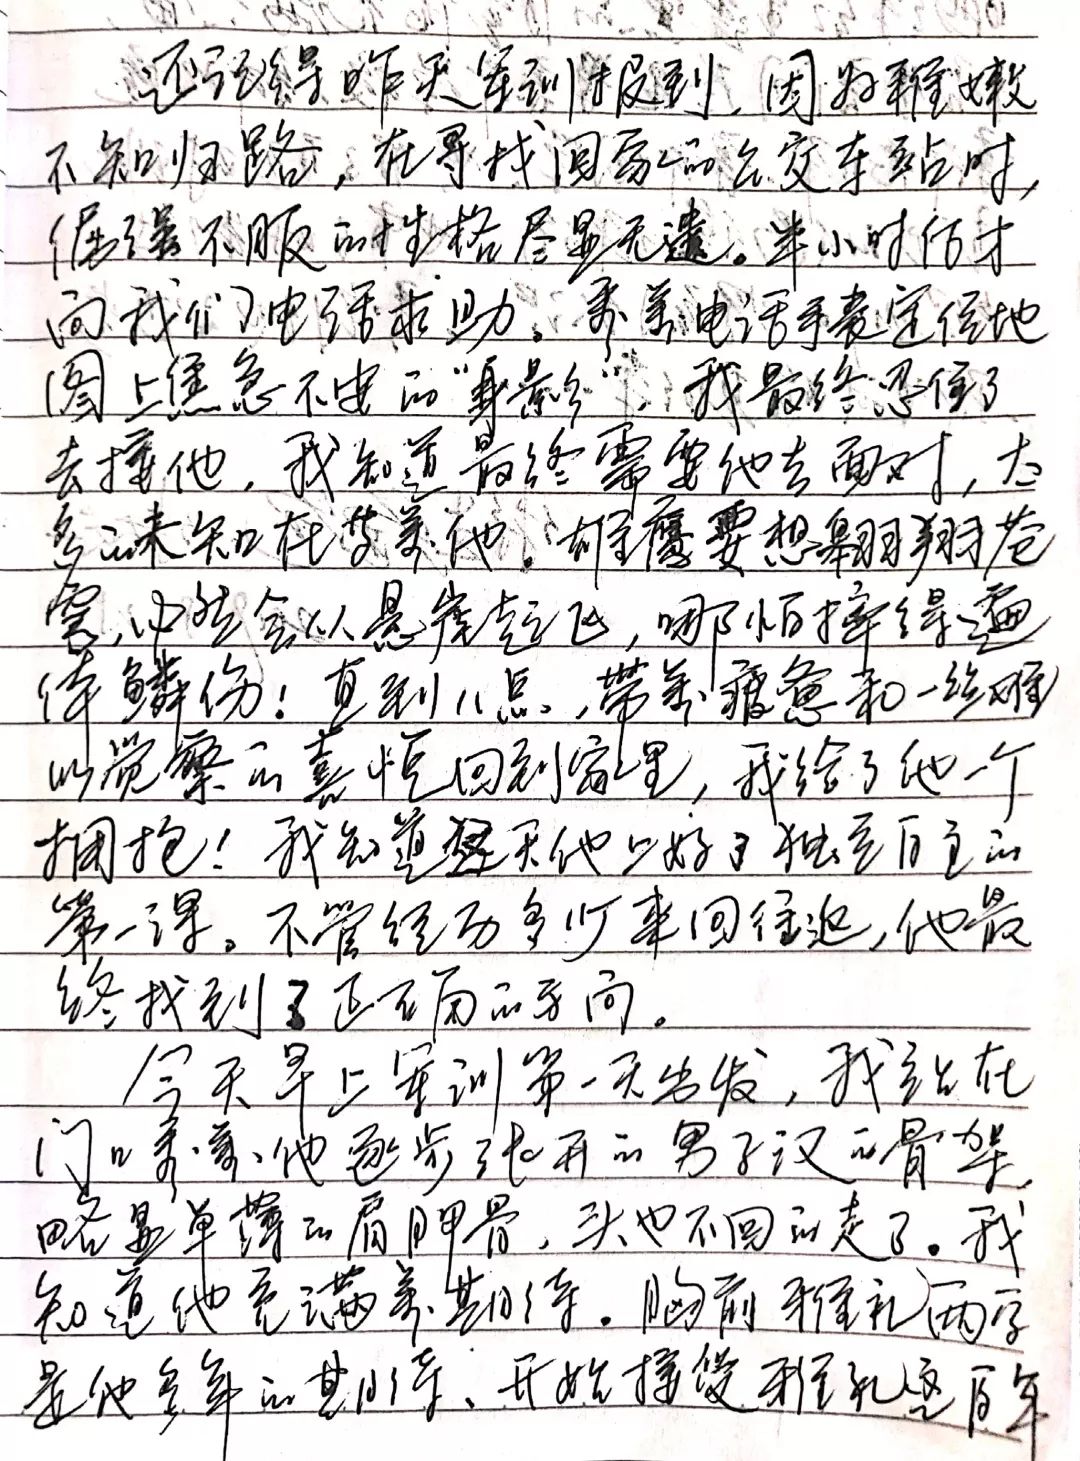 还记得昨天军训报到，因为稚嫩
不知归路，在寻找回家的公交车站时，
倔强不服的性格尽显无遗。半小时后才
向我们电话求助。看着电话手表定位地
图上焦急不安的“身影”，我最终忍住了
去接他，我知道最终需要他去面对，太
多的未知在等着他。雄鹰要想翱翔苍
穹，必然会从悬崖起飞，哪怕摔得遍
体鳞伤！直到八点，带着疲惫和一丝难
以觉察的喜悦回到家里，我给了他一个
拥抱！我知道今天他上好了独立自主的
第一课。不管经历多少来回往返，他最
终找到了正确的方向。
今天早上军训第一天出发，我站在
门口看着他逐步张开的男子汉的骨架，
略显单薄的肩胛骨，头也不回的走了。我
知道他充满着期待。胸前雅礼两字
是他多年的期待、开始接受雅礼这百年